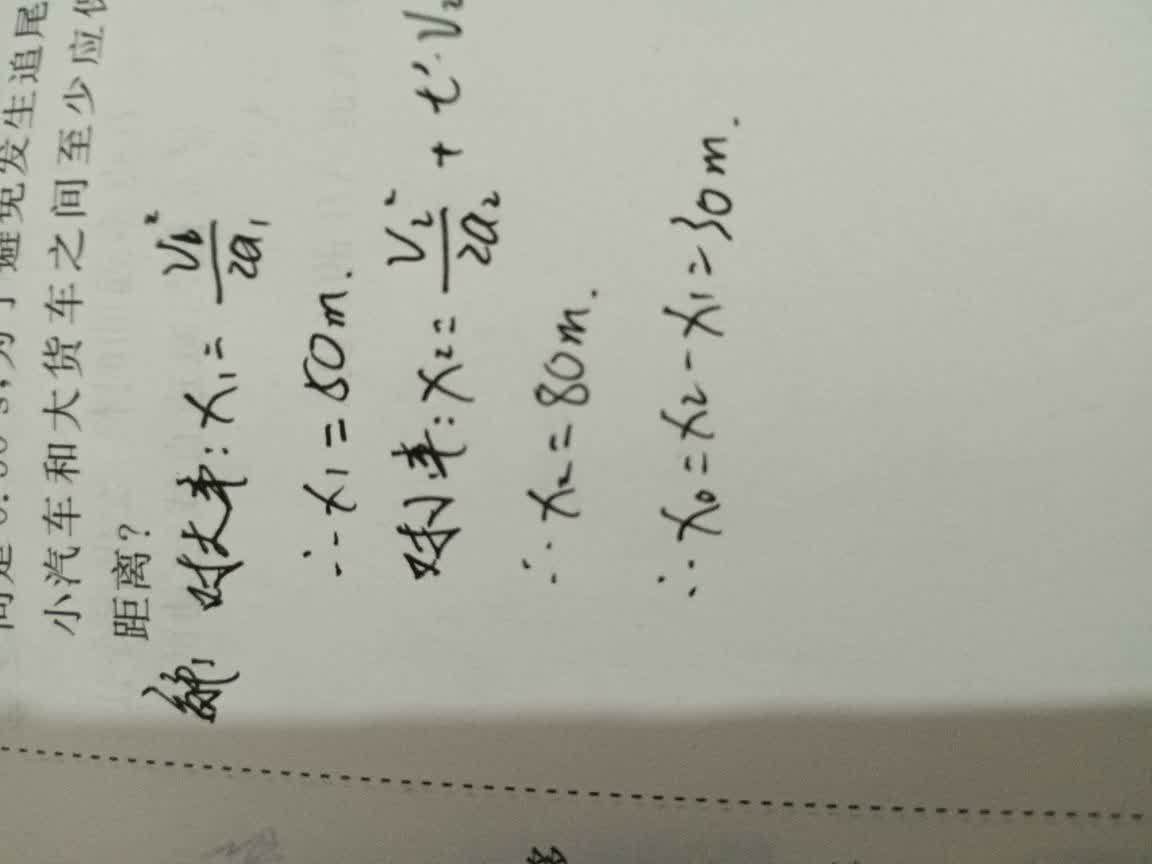 间是0.50 s,为了避免发生追尾
小汽车和大货车之间至少应保
距离?
解: 对大车: x₁ = V₁² / 2a₁
∴ x₁ = 50m.
对小车: x₂ = V₂² / 2a₂ + t'·V₂
∴ x₂ = 80m.
∴ x₀ = x₂ - x₁ = 30m.